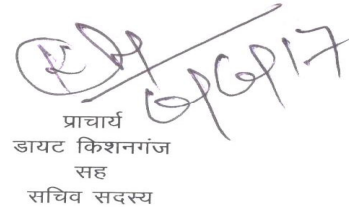 प्राचार्य
डायट किशनगंज
सह
सचिव सदस्य